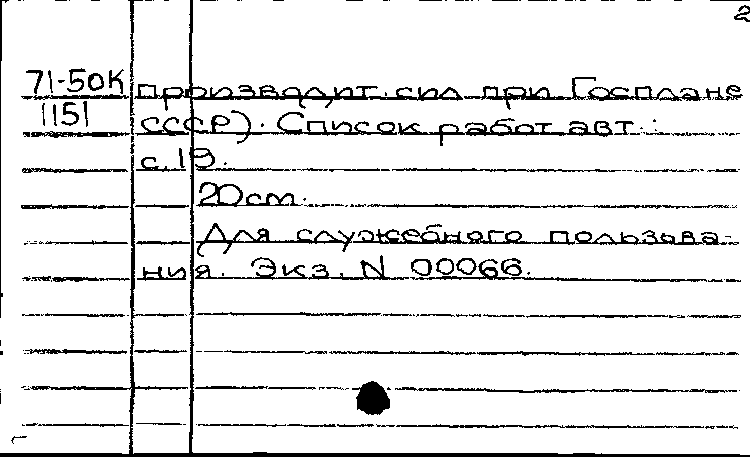 2
71-50К производит. сил при Госплане
1151 СССР). Список работ авт.:
с. 19.
20см.
Для служебного пользова-
ния. Экз. N 00066.